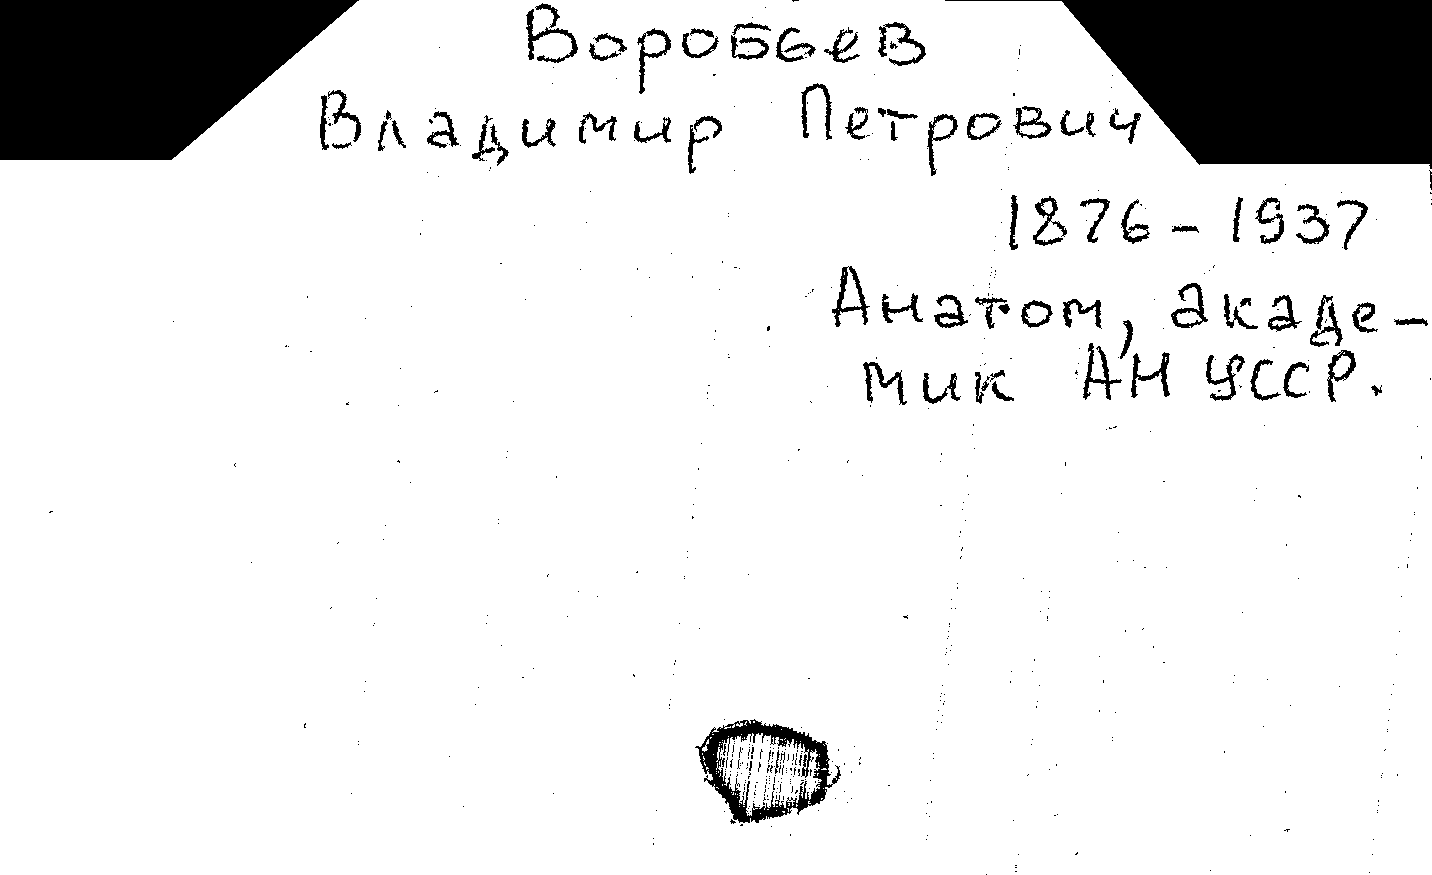 Воробьев
Владимир Петрович
1876-1937
Анатом, акаде-
мик АН УССР.